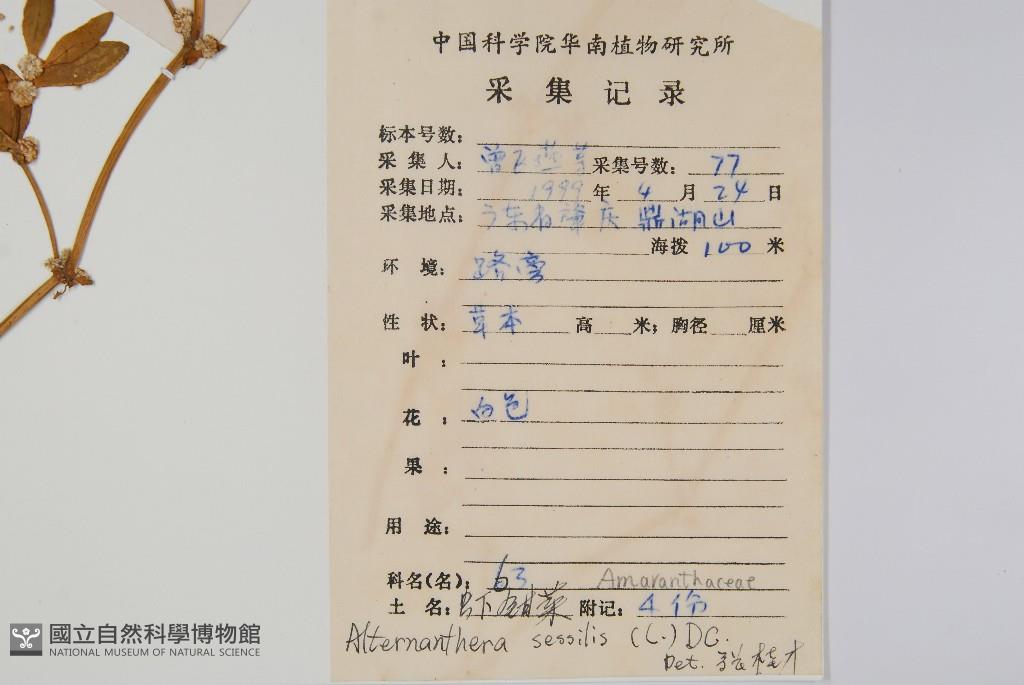 中国科学院华南植物研究所
采集记录
标本号数:
采集人: 曾飞燕等 采集号数: 77
采集日期: 1999 年 4 月 24 日
采集地点: 广东省肇庆 鼎湖山
海拨 100 米
环境: 路旁
性状: 草本 高 米; 胸径 厘米
叶:
花: 白色
果:
用途:
科名(名): 63 Amaranthaceae
土名: 虾钳菜 附记: 4份
Alternanthera sessilis (L.) DC.
Det. 张桂才
國立自然科學博物館
NATIONAL MUSEUM OF NATURAL SCIENCE